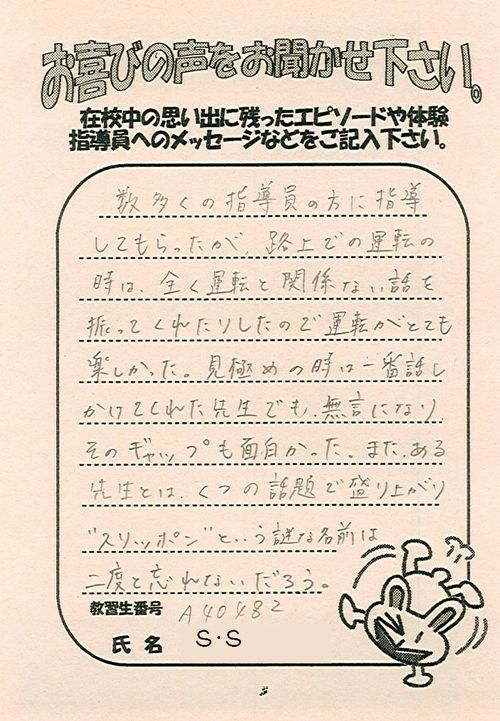 お喜びの声をお聞かせ下さい。
在校中の思い出に残ったエピソードや体験
指導員へのメッセージなどをご記入下さい。
数多くの指導員の方に指導
してもらったが、路上での運転の
時は、全く運転と関係ない話を
振ってくれたりしたので運転がとても
楽しかった。見極めの時は一番話し
かけてくれた先生でも、無言になり
そのギャップも面白かった。また、ある
先生とは、くつの話題で盛り上がり
"スリッポン"という謎な名前は
二度と忘れないだろう。
教習生番号 A40482
氏名 S・S